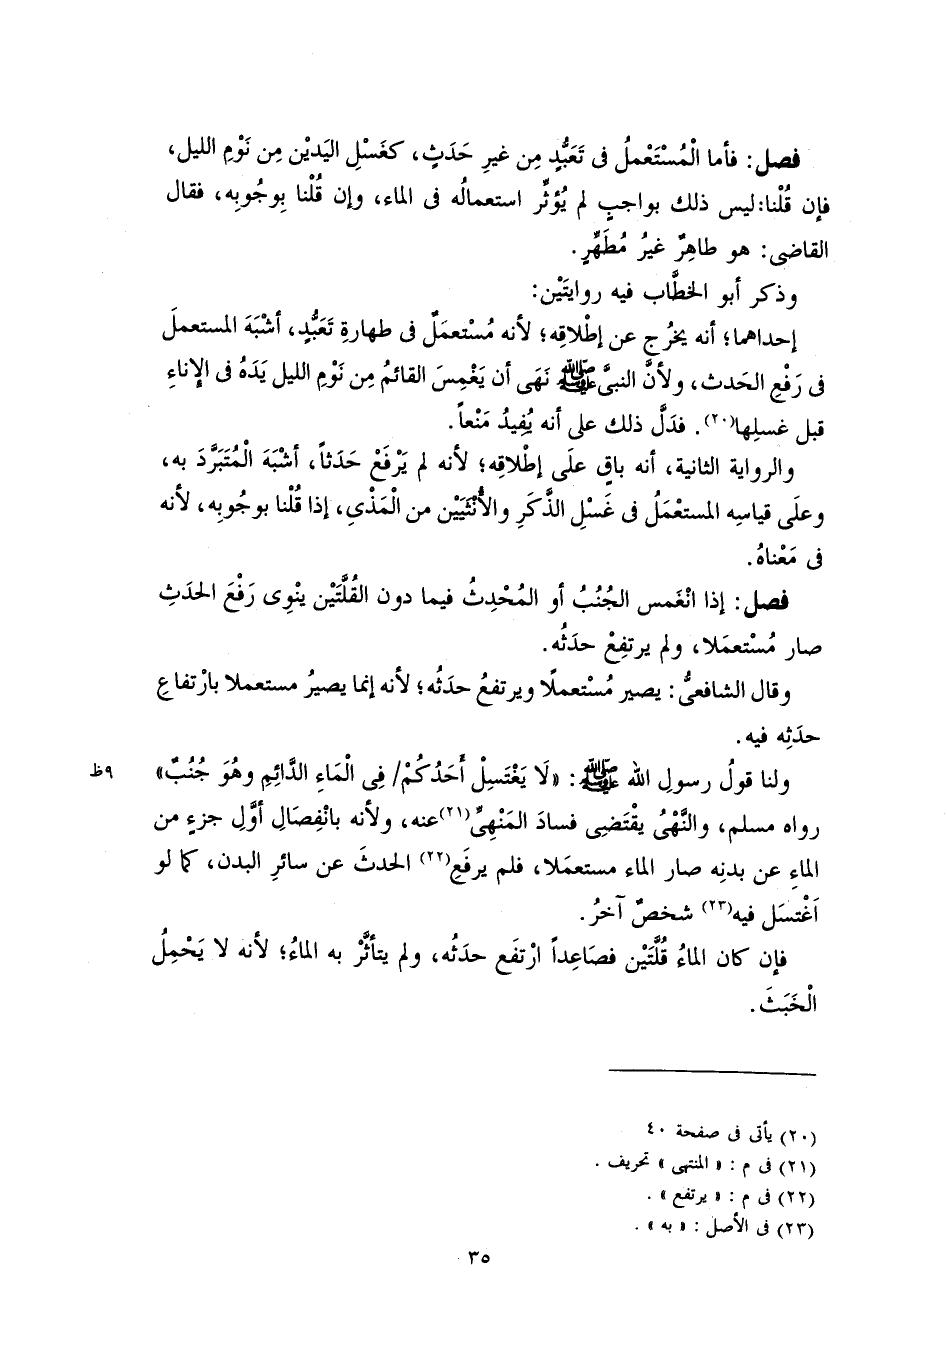 فصل : فأما الْمُسْتَعْمَلُ فى تَعَبُّدٍ مِن غيرِ حَدَثٍ ، كغَسْلِ اليَدَيْن مِن نَوْمِ الليل ،
فإن قُلْنا : ليس ذلك بواجبٍ لم يُؤثِّر استعمالُه فى الماء ، وإن قُلْنا بِوجُوبِه ، فقال
القاضى : هو طاهِرٌ غيرُ مُطَهِّرٍ .
وذكر أبو الخطَّاب فيه روايتَيْن :
إحداهما ؛ أنه يخرُج عن إطْلاقِه ؛ لأنه مُسْتعمَلٌ فى طهارةِ تَعَبُّدٍ ، أشْبَهَ المستعملَ
فى رَفْعِ الحَدث ، ولأنَّ النبىَّ ﷺ نَهَى أن يَغْمِسَ القائمُ مِن نَوْمِ الليل يَدَهُ فى الإناءِ
قبل غسلِها(٢٠) . فدَلَّ ذلك على أنه يُفِيدُ مَنْعاً .
والرواية الثانية ، أنه باقٍ علَى إطْلاقِه ؛ لأنه لم يَرْفَعْ حَدَثاً ، أشْبَهَ الْمُتَبَرَّدَ به ،
وعلَى قياسِه المستعْمَلُ فى غَسْلِ الذَّكَرِ والأُنْثَيَيْن من الْمَذْىِ ، إذا قُلْنا بوجُوبِه ، لأنه
فى مَعْناهُ .
فصل : إذا انْغَمس الجُنُبُ أو المُحْدِثُ فيما دون القُلَّتَيْن ينْوِى رَفْعَ الحدَثِ
صار مُسْتعمَلا ، ولم يرتفِعْ حدَثُه .
وقال الشافعىُّ : يصير مُسْتعملًا ويرتفعُ حدَثُه ؛ لأنه إنما يصيرُ مستعملا بارْتفاعِ
حدَثِه فيه .
ولنا قولُ رسولِ الله ﷺ : « لَا يَغْتَسِلْ أَحَدُكُمْ / فِى الْمَاءِ الدَّائِمِ وهُوَ جُنُبٌ » ٩ظ
رواه مسلم ، والنَّهْىُ يقْتَضِى فسادَ المَنْهِىِّ(٢١) عنه ، ولأنه بانْفِصَالِ أوَّلِ جزءٍ من
الماءِ عن بدنِه صار الماء مستعمَلا ، فلم يرفَعِ(٢٢) الحدثَ عن سائرِ البدن ، كما لو
اَغْتسَل فيه(٢٣) شخصٌ آخرُ .
فإن كان الماءُ قُلَّتَيْن فصَاعِداً ارْتفَع حدَثُه ، ولم يتأثَّرْ به الماءُ ؛ لأنه لا يَحْمِلُ
الْخَبَثَ .
(٢٠) يأتى فى صفحة ٤٠
(٢١) فى م : « المنتهى » تحريف .
(٢٢) فى م : « يرتفع » .
(٢٣) فى الأصل : « به » .
٣٥